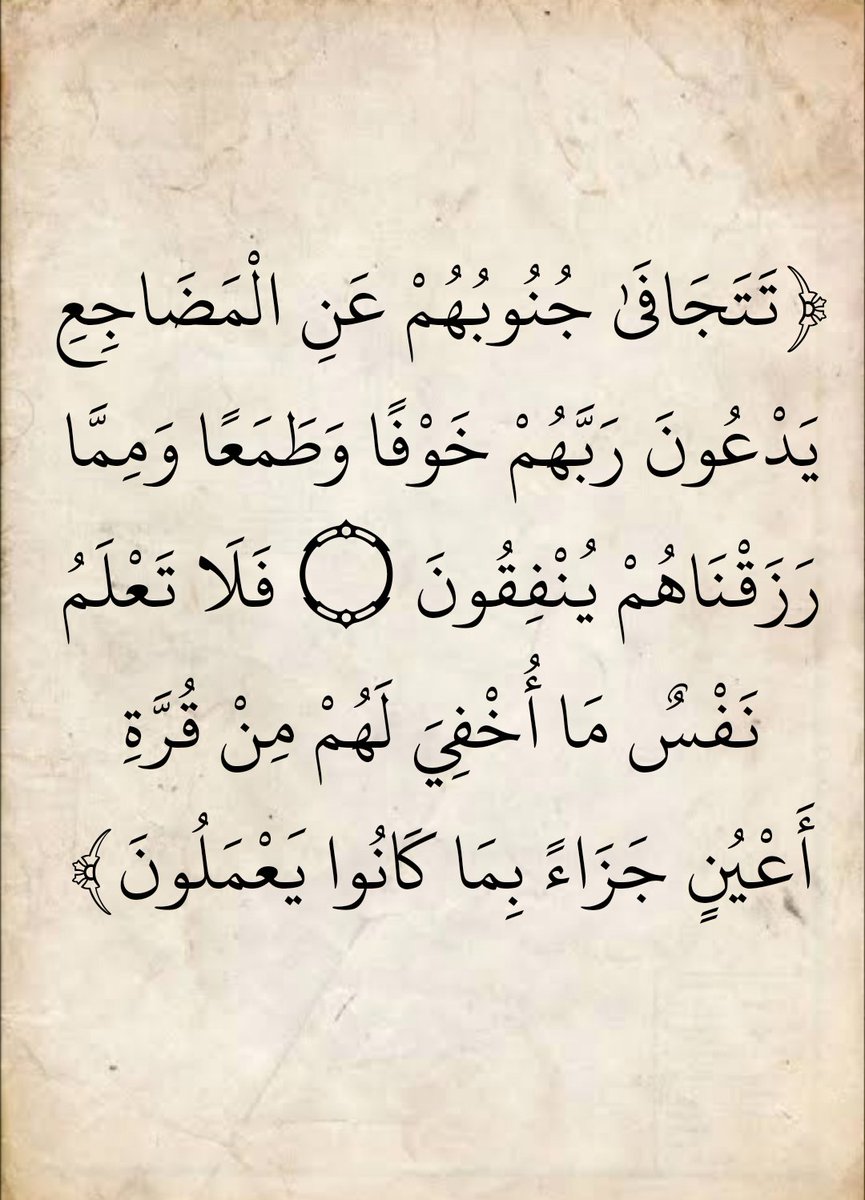 ﴿تَتَجَافَىٰ جُنُوبُهُمْ عَنِ الْمَضَاجِعِ
يَدْعُونَ رَبَّهُمْ خَوْفًا وَطَمَعًا وَمِمَّا
رَزَقْنَاهُمْ يُنْفِقُونَ ۝ فَلَا تَعْلَمُ
نَفْسٌ مَا أُخْفِيَ لَهُمْ مِنْ قُرَّةِ
أَعْيُنٍ جَزَاءً بِمَا كَانُوا يَعْمَلُونَ﴾